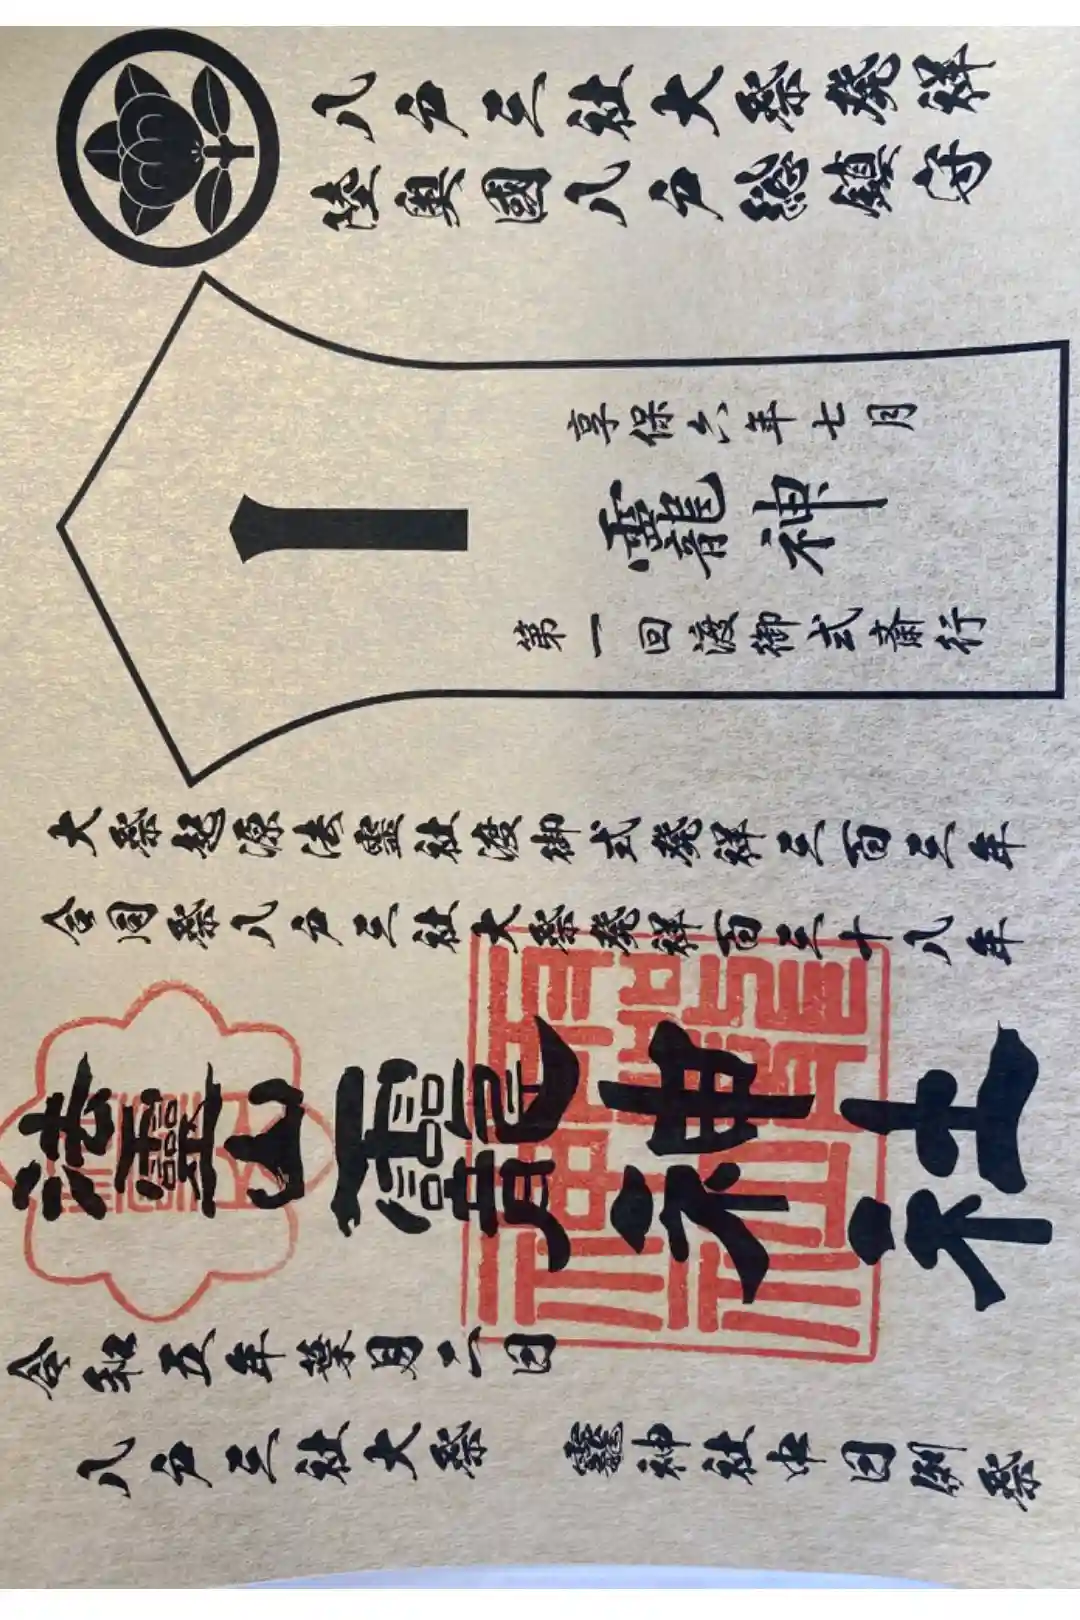 八戸三社大祭發祥
陸奥國八戸總鎮守
享保六年七月
龗神
第一回渡御式斎行
大祭起源法霊社渡御式發祥三百三年
合同祭八戸三社大祭發祥百三十八年
法靈山龗神社
令和五年葉月二日
八戸三社大祭 龗神社中日例祭